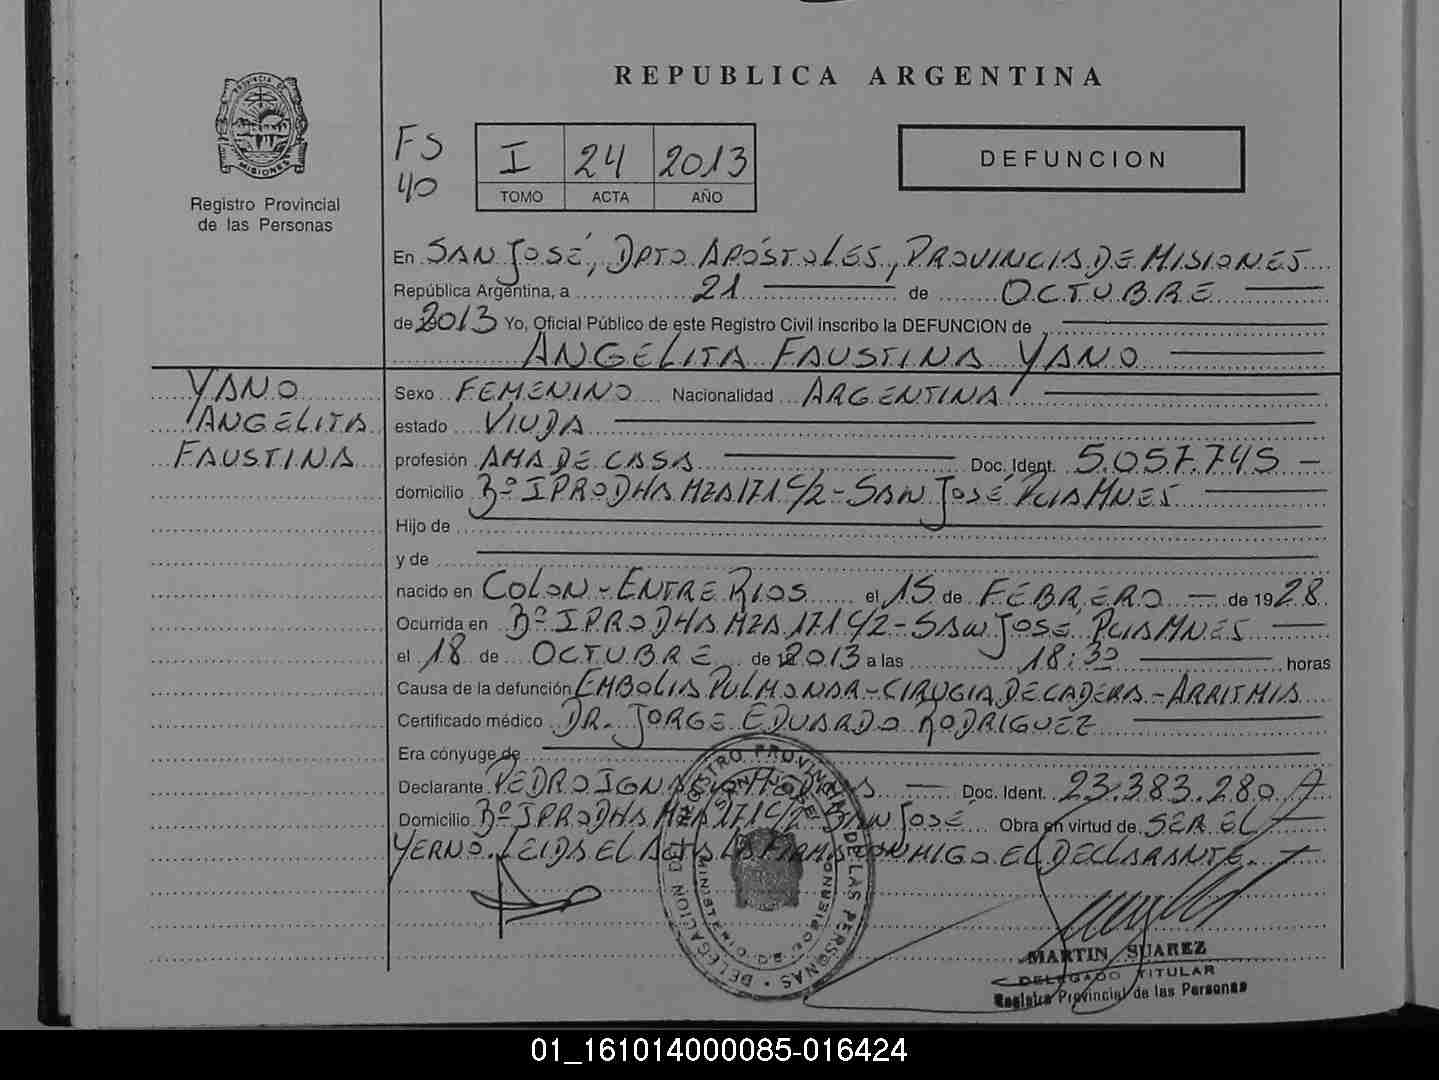 REPUBLICA ARGENTINA
PROVINCIA DE
MISIONES
Registro Provincial
de las Personas
FS
40
I 24 2013
TOMO ACTA AÑO
DEFUNCION
En SAN JOSÉ, DPTO APÓSTOLES, PROVINCIA DE MISIONES
República Argentina, a 21 de OCTUBRE
de 2013 Yo, Oficial Público de este Registro Civil inscribo la DEFUNCION de
ANGELITA FAUSTINA YANO
YANO
ANGELITA
FAUSTINA
Sexo FEMENINO Nacionalidad ARGENTINA
estado VIUDA
profesión AMA DE CASA Doc. Ident. 5.057.745
domicilio Bº IPRODHA MZA 171 C/2 - SAN JOSÉ PCIA MNES
Hijo de
y de
nacido en COLON - ENTRE RIOS el 15 de FEBRERO de 1928
Ocurrida en Bº IPRODHA MZA 171 C/2 - SAN JOSÉ PCIA MNES
el 18 de OCTUBRE de 2013 a las 18:30 horas
Causa de la defunción EMBOLIA PULMONAR - CIRUGIA DE CADERA - ARRITMIA
Certificado médico DR. JORGE EDUARDO RODRIGUEZ
Era cónyuge de
Declarante PEDRO Doc. Ident. 23.383.280
Domicilio Bº IPRODHA MZA 171 C/2 SAN JOSÉ Obra en virtud de SER EL
YERNO. LEIDA EL ACTA LA FIRMA CONMIGO EL DECLARANTE.
DELEGACION DEL REGISTRO PROVINCIAL DE LAS PERSONAS
SAN JOSE
MINISTERIO DE GOBIERNO
MARTIN SUAREZ
DELEGADO TITULAR
Registro Provincial de las Personas
01_161014000085-016424